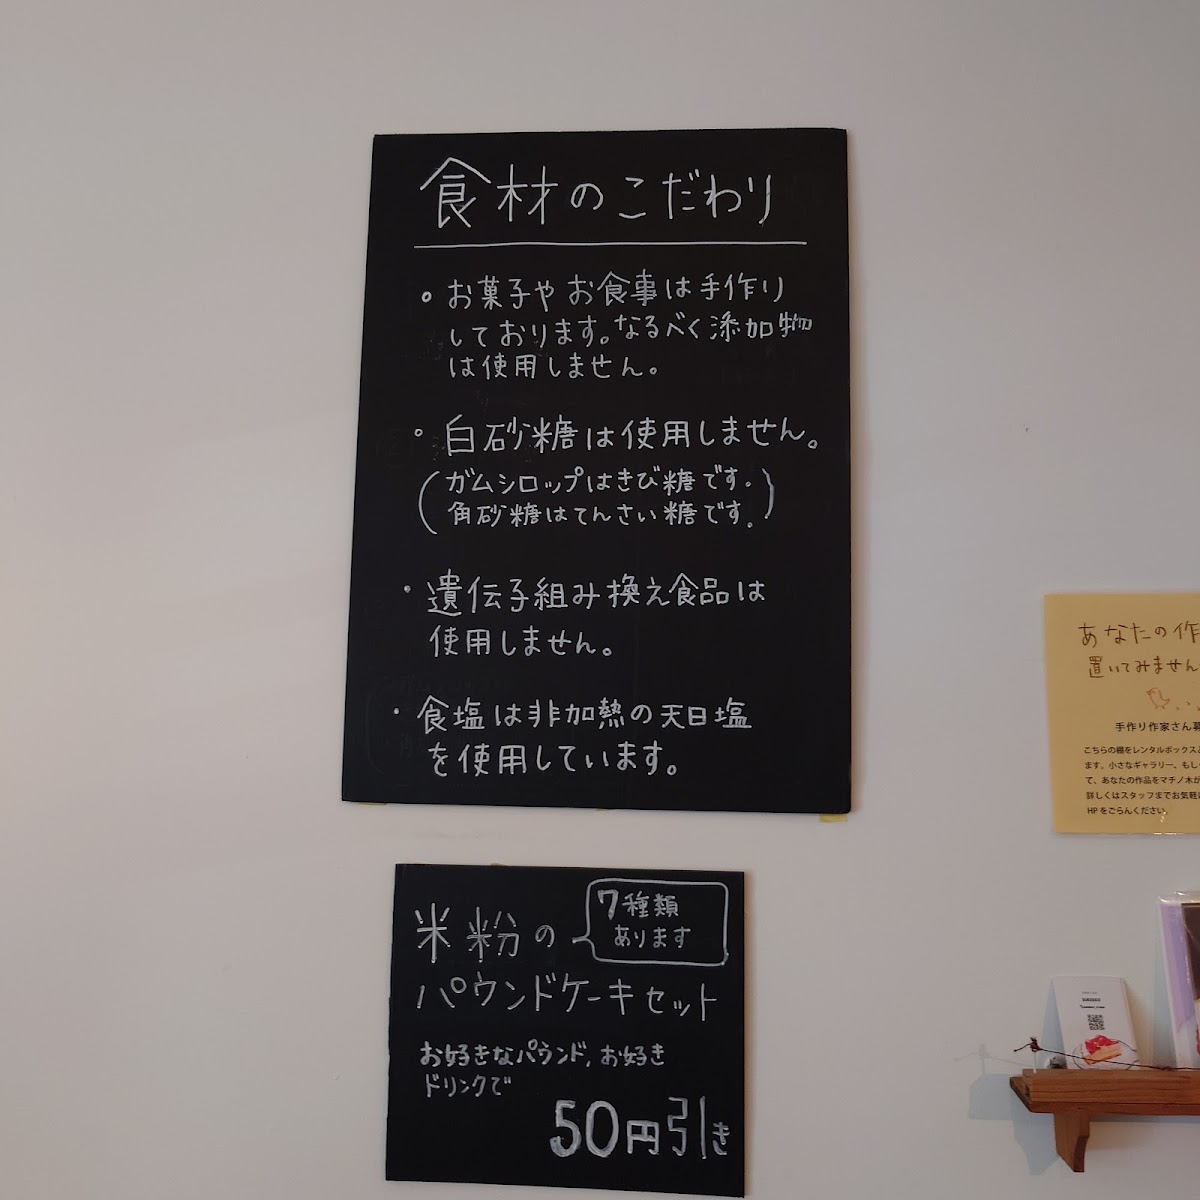 食材のこだわり
• お菓子や お食事は手作り
しております。なるべく添加物
は使用しません。
• 白砂糖は使用しません。
(ガムシロップはきび糖です.
角砂糖はてんさい糖です.)
• 遺伝子組み換え食品は
使用しません。
• 食塩は非加熱の天日塩
を使用しています。
米粉の
7種類
あります
パウンドケーキセット
お好きなパウンド, お好き
ドリンクで
50円引き
あなたの作
置いてみません
手作り作家さん募
こちらの棚をレンタルボックス
ます。小さなギャラリー、もし
て、あなたの作品をマチノ木が
詳しくはスタッフまでお気軽
HPをごらんください。